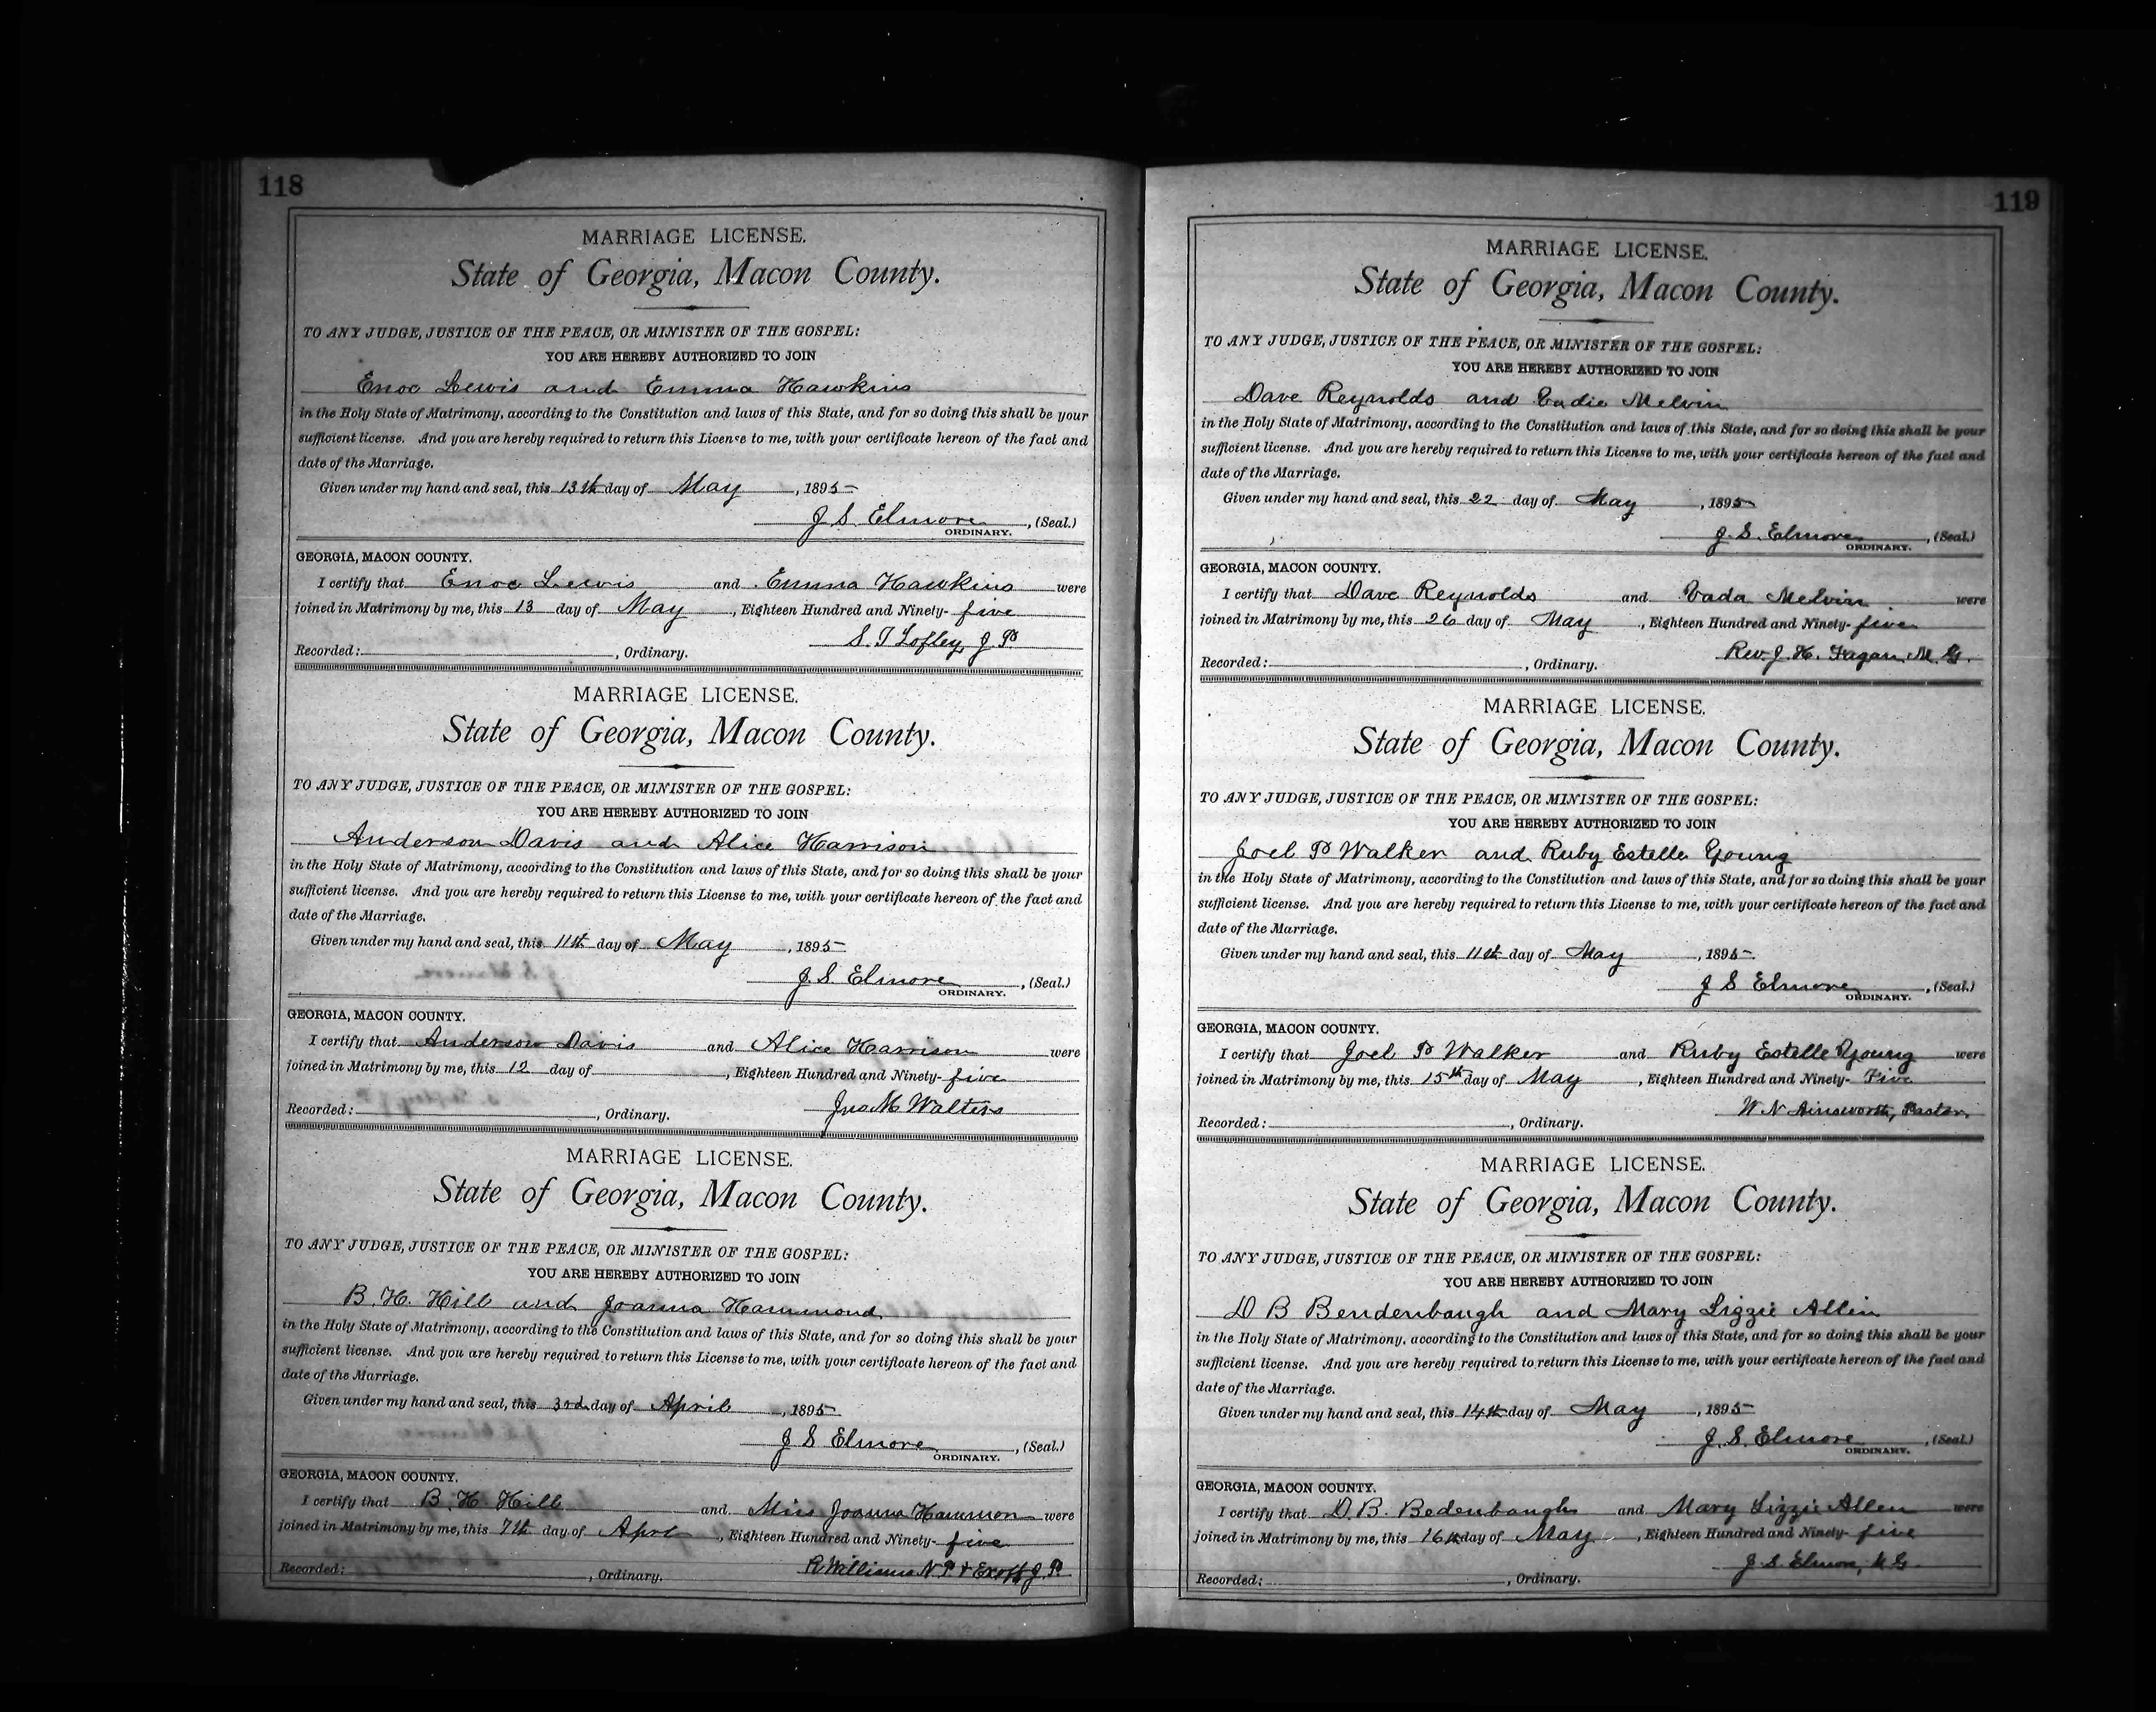 118
MARRIAGE LICENSE.
State of Georgia, Macon County.
TO ANY JUDGE, JUSTICE OF THE PEACE, OR MINISTER OF THE GOSPEL:
YOU ARE HEREBY AUTHORIZED TO JOIN
Enoc Lewis and Emma Hawkins
in the Holy State of Matrimony, according to the Constitution and laws of this State, and for so doing this shall be your
sufficient license. And you are hereby required to return this License to me, with your certificate hereon of the fact and
date of the Marriage.
Given under my hand and seal, this 13th day of May, 1895
J. S. Elmore, (Seal.)
ORDINARY.
GEORGIA, MACON COUNTY.
I certify that Enoc Lewis and Emma Hawkins were
joined in Matrimony by me, this 13 day of May, Eighteen Hundred and Ninety-five
S. T Lofley, J P.
Recorded: , Ordinary.
MARRIAGE LICENSE.
State of Georgia, Macon County.
TO ANY JUDGE, JUSTICE OF THE PEACE, OR MINISTER OF THE GOSPEL:
YOU ARE HEREBY AUTHORIZED TO JOIN
Anderson Davis and Alice Harrison
in the Holy State of Matrimony, according to the Constitution and laws of this State, and for so doing this shall be your
sufficient license. And you are hereby required to return this License to me, with your certificate hereon of the fact and
date of the Marriage.
Given under my hand and seal, this 11th day of May, 1895
J. S. Elmore, (Seal.)
ORDINARY.
GEORGIA, MACON COUNTY.
I certify that Anderson Davis and Alice Harrison were
joined in Matrimony by me, this 12 day of , Eighteen Hundred and Ninety-five
Jno M Walters
Recorded: , Ordinary.
MARRIAGE LICENSE.
State of Georgia, Macon County.
TO ANY JUDGE, JUSTICE OF THE PEACE, OR MINISTER OF THE GOSPEL:
YOU ARE HEREBY AUTHORIZED TO JOIN
B. H. Hill and Joanna Hammond
in the Holy State of Matrimony, according to the Constitution and laws of this State, and for so doing this shall be your
sufficient license. And you are hereby required to return this License to me, with your certificate hereon of the fact and
date of the Marriage.
Given under my hand and seal, this 3rd day of April, 1895
J S Elmore, (Seal.)
ORDINARY.
GEORGIA, MACON COUNTY.
I certify that B. H. Hill and Miss Joanna Hammon were
joined in Matrimony by me, this 7th day of Aprl, Eighteen Hundred and Ninety-five
R Williams N P & Exoff J. P
Recorded: , Ordinary.
119
MARRIAGE LICENSE.
State of Georgia, Macon County.
TO ANY JUDGE, JUSTICE OF THE PEACE, OR MINISTER OF THE GOSPEL:
YOU ARE HEREBY AUTHORIZED TO JOIN
Dave Reynolds and Vadie Melvin
in the Holy State of Matrimony, according to the Constitution and laws of this State, and for so doing this shall be your
sufficient license. And you are hereby required to return this License to me, with your certificate hereon of the fact and
date of the Marriage.
Given under my hand and seal, this 22 day of May, 1895
J. S. Elmore, (Seal.)
ORDINARY.
GEORGIA, MACON COUNTY.
I certify that Dave Reynolds and Vada Melvin were
joined in Matrimony by me, this 26 day of May, Eighteen Hundred and Ninety-five
Rev. J. H. Fagan, M. G.
Recorded: , Ordinary.
MARRIAGE LICENSE.
State of Georgia, Macon County.
TO ANY JUDGE, JUSTICE OF THE PEACE, OR MINISTER OF THE GOSPEL:
YOU ARE HEREBY AUTHORIZED TO JOIN
Joel P Walker and Ruby Estelle Young
in the Holy State of Matrimony, according to the Constitution and laws of this State, and for so doing this shall be your
sufficient license. And you are hereby required to return this License to me, with your certificate hereon of the fact and
date of the Marriage.
Given under my hand and seal, this 11th day of May, 1895
J S Elmore, (Seal.)
ORDINARY.
GEORGIA, MACON COUNTY.
I certify that Joel P Walker and Ruby Estelle Young were
joined in Matrimony by me, this 15th day of May, Eighteen Hundred and Ninety-Five
W. N Ainsworth, Pastor.
Recorded: , Ordinary.
MARRIAGE LICENSE.
State of Georgia, Macon County.
TO ANY JUDGE, JUSTICE OF THE PEACE, OR MINISTER OF THE GOSPEL:
YOU ARE HEREBY AUTHORIZED TO JOIN
D B Bendenbaugh and Mary Lizzie Allen
in the Holy State of Matrimony, according to the Constitution and laws of this State, and for so doing this shall be your
sufficient license. And you are hereby required to return this License to me, with your certificate hereon of the fact and
date of the Marriage.
Given under my hand and seal, this 14th day of May, 1895
J. S. Elmore, (Seal.)
ORDINARY.
GEORGIA, MACON COUNTY.
I certify that D. B. Bedenbaugh and Mary Lizzie Allen were
joined in Matrimony by me, this 16th day of May, Eighteen Hundred and Ninety-five
J. S. Elmore, M G.
Recorded: , Ordinary.